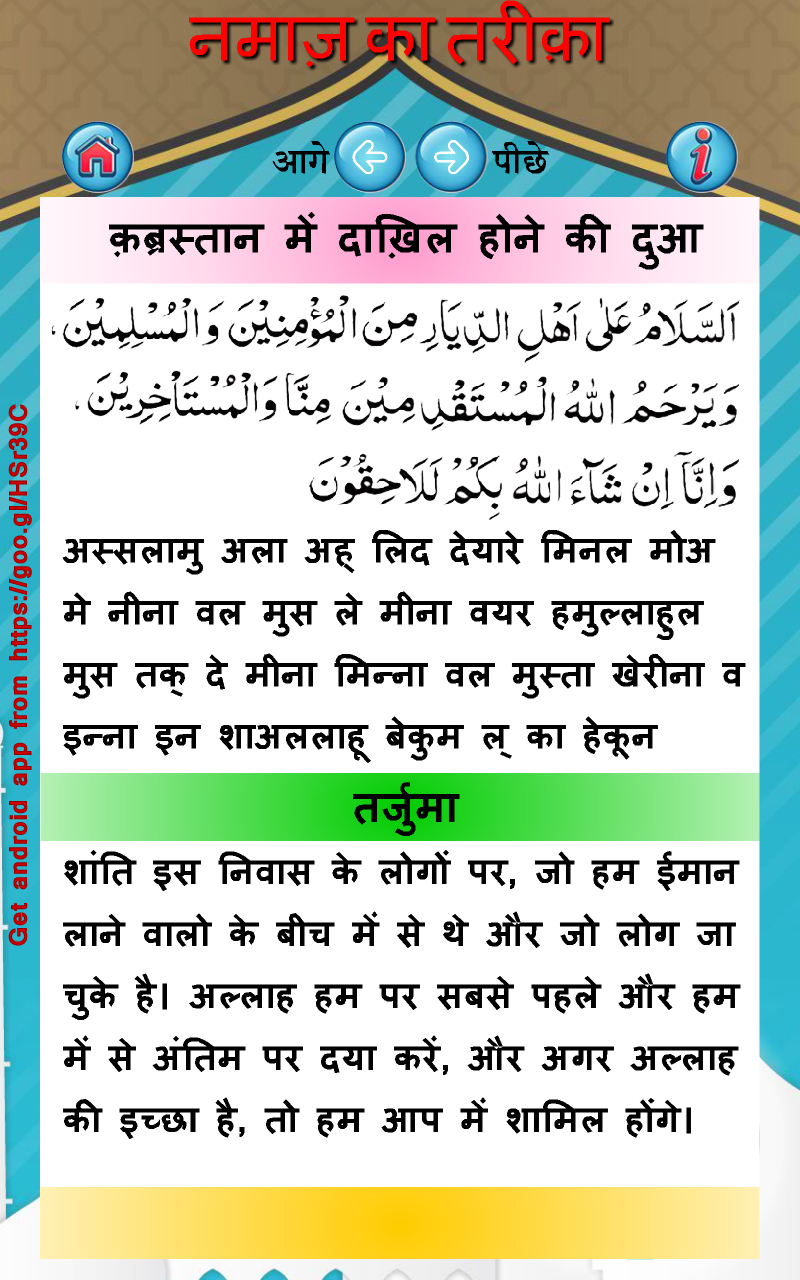 नमाज़ का तरीक़ा
आगे पीछे
क़ब्रस्तान में दाख़िल होने की दुआ
اَلسَّلَامُ عَلٰى اَهْلِ الدِّيَارِ مِنَ الْمُؤْمِنِيْنَ وَالْمُسْلِمِيْنَ،
وَيَرْحَمُ اللهُ الْمُسْتَقْدِمِيْنَ مِنَّا وَالْمُسْتَاْخِرِيْنَ،
وَاِنَّاۤ اِنْ شَآءَ اللهُ بِكُمْ لَلَاحِقُوْنَ
अस्सलामु अला अह् लिद देयारे मिनल मोअ
मे नीना वल मुस ले मीना वयर हमुल्लाहुल
मुस तक् दे मीना मिन्ना वल मुस्ता खेरीना व
इन्ना इन शाअललाहू बेकुम ल् का हेकून
तर्जुमा
शांति इस निवास के लोगों पर, जो हम ईमान
लाने वालो के बीच में से थे और जो लोग जा
चुके है। अल्लाह हम पर सबसे पहले और हम
में से अंतिम पर दया करें, और अगर अल्लाह
की इच्छा है, तो हम आप में शामिल होंगे।
Get android app from https://goo.gl/HSr39C